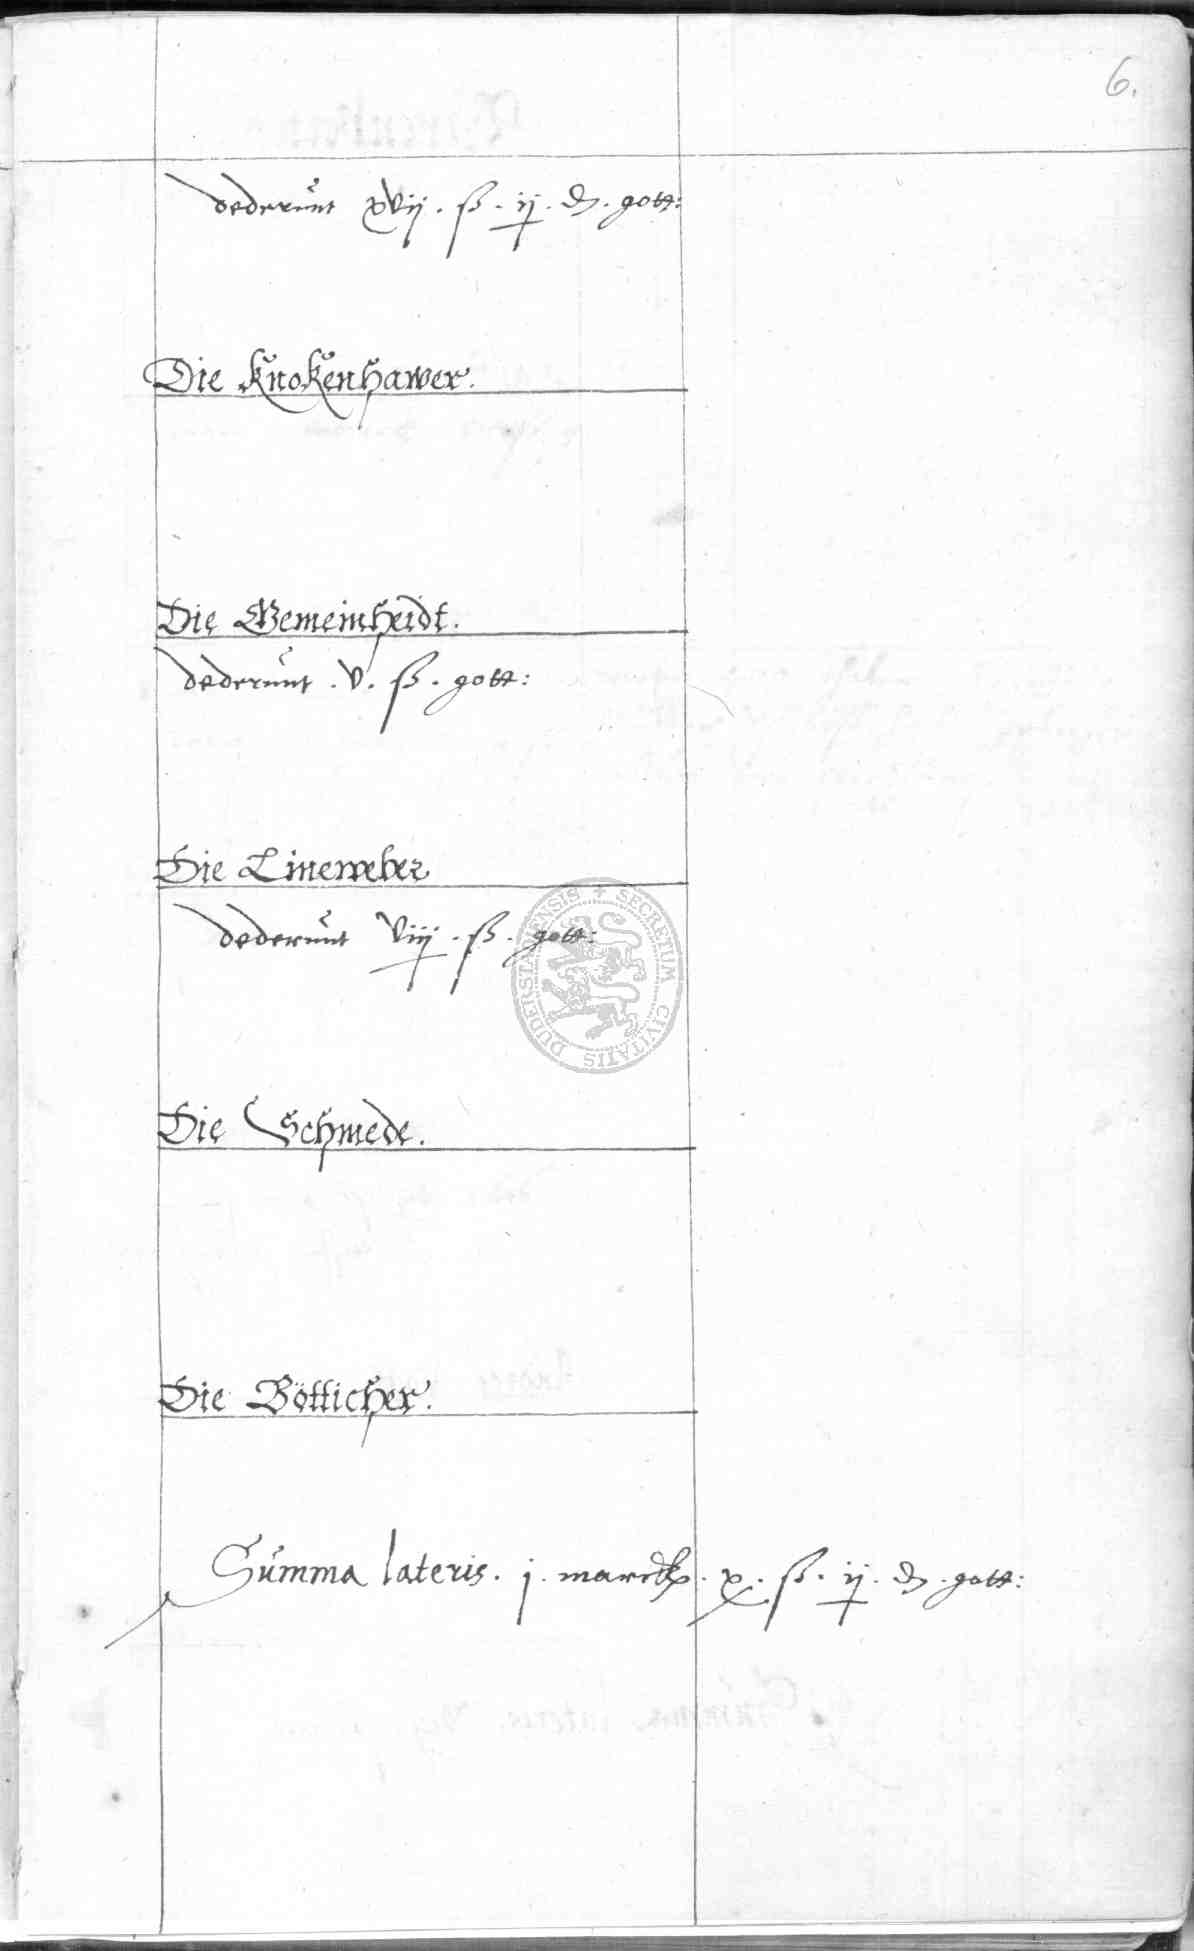 6.
dederunt xvij . ß . ij . ₰ . gott:
Die Knokenhawer.
Die Gemeinheidt.
dederunt . v . ß . gott:
Die Lineweber
dederunt viij . ß . gott:
SECRETUM CIVITATIS DUDERSTADENSIS
Die Schmede.
Die Bötticher.
Summa lateris . j . marck . x . ß . ij . ₰ . gott: